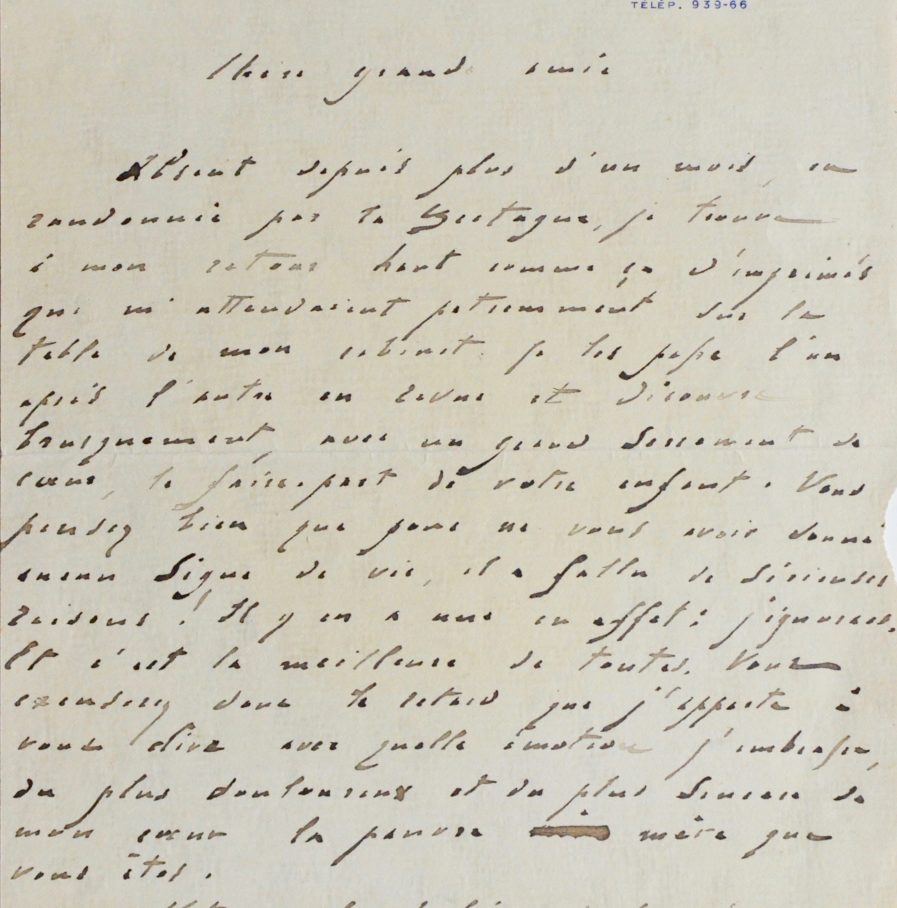 TÉLÉP. 939-66
Chère grande amie
Absent depuis plus d'un mois, en
randonnée par la Bretagne, je trouve
à mon retour haut comme ça d'imprimés
qui m'attendaient patiemment sur la
table de mon cabinet. Je les passe l'un
après l'autre en revue et découvre
brusquement, avec un grand serrement de
cœur, le faire-part de votre enfant. Vous
pensez bien que pour ne vous avoir donné
aucun signe de vie, il a fallu de sérieuses
raisons ! Il y en a une en effet : j'ignorais.
Et c'est la meilleure de toutes. Vous
excuserez donc le retard que j'apporte à
vous dire avec quelle émotion j'embrasse,
du plus douloureux et du plus sincère de
mon cœur la pauvre mère que
vous êtes.